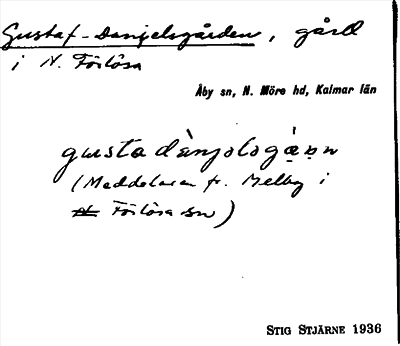 Gustaf-Danjelsgården, gård
i N. Förlösa
Åby sn, N. Möre hd, Kalmar län
gusta dànjəlsgạ̀ṇn
(Meddelaren fr. Melby i
Förlösa sn)
STIG STJÄRNE 1936